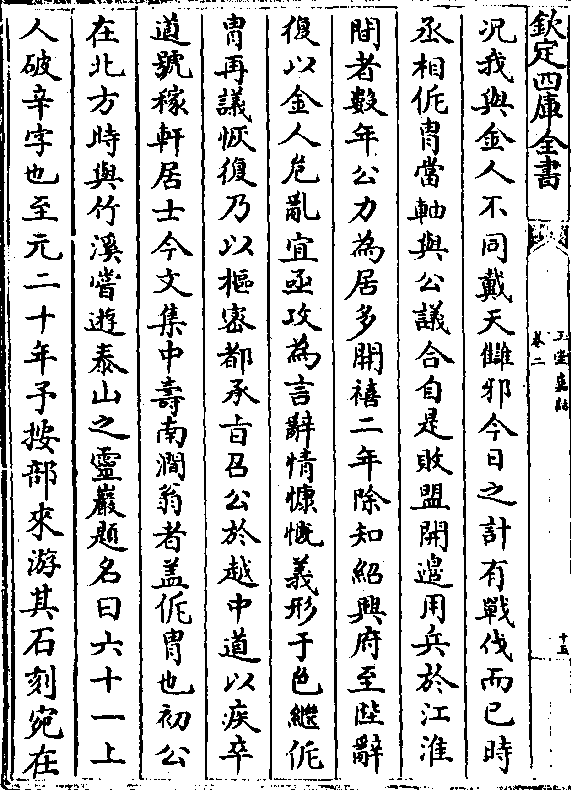 欽定四庫全書
玉堂嘉話
卷二
十五
況我與金人不同戴天讎邪今日之計有戰伐而已時
丞相侂胄當軸與公議合自是敗盟開邊用兵於江淮
間者數年公力為居多開禧二年除知紹興府至陛辭
復以金人危亂宜亟攻為言辭情慷慨義形于色繼侂
胄再議恢復乃以樞密都承旨召公於越中道以疾卒
道號稼軒居士今文集中壽南澗翁者盖侂胄也初公
在北方時與竹溪嘗遊泰山之靈巖題名曰六十一上
人破辛字也至元二十年予按部來游其石刻宛在